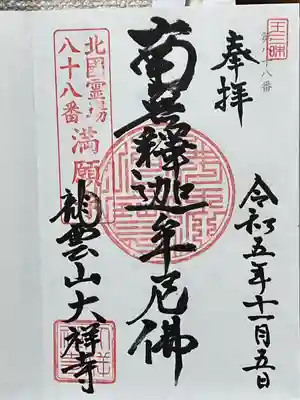 王三昧
第八十八番
奉拝
令和五年十一月五日
南無釋迦牟尼佛
北国霊場
八十八番
満願
龍雲山大祥寺